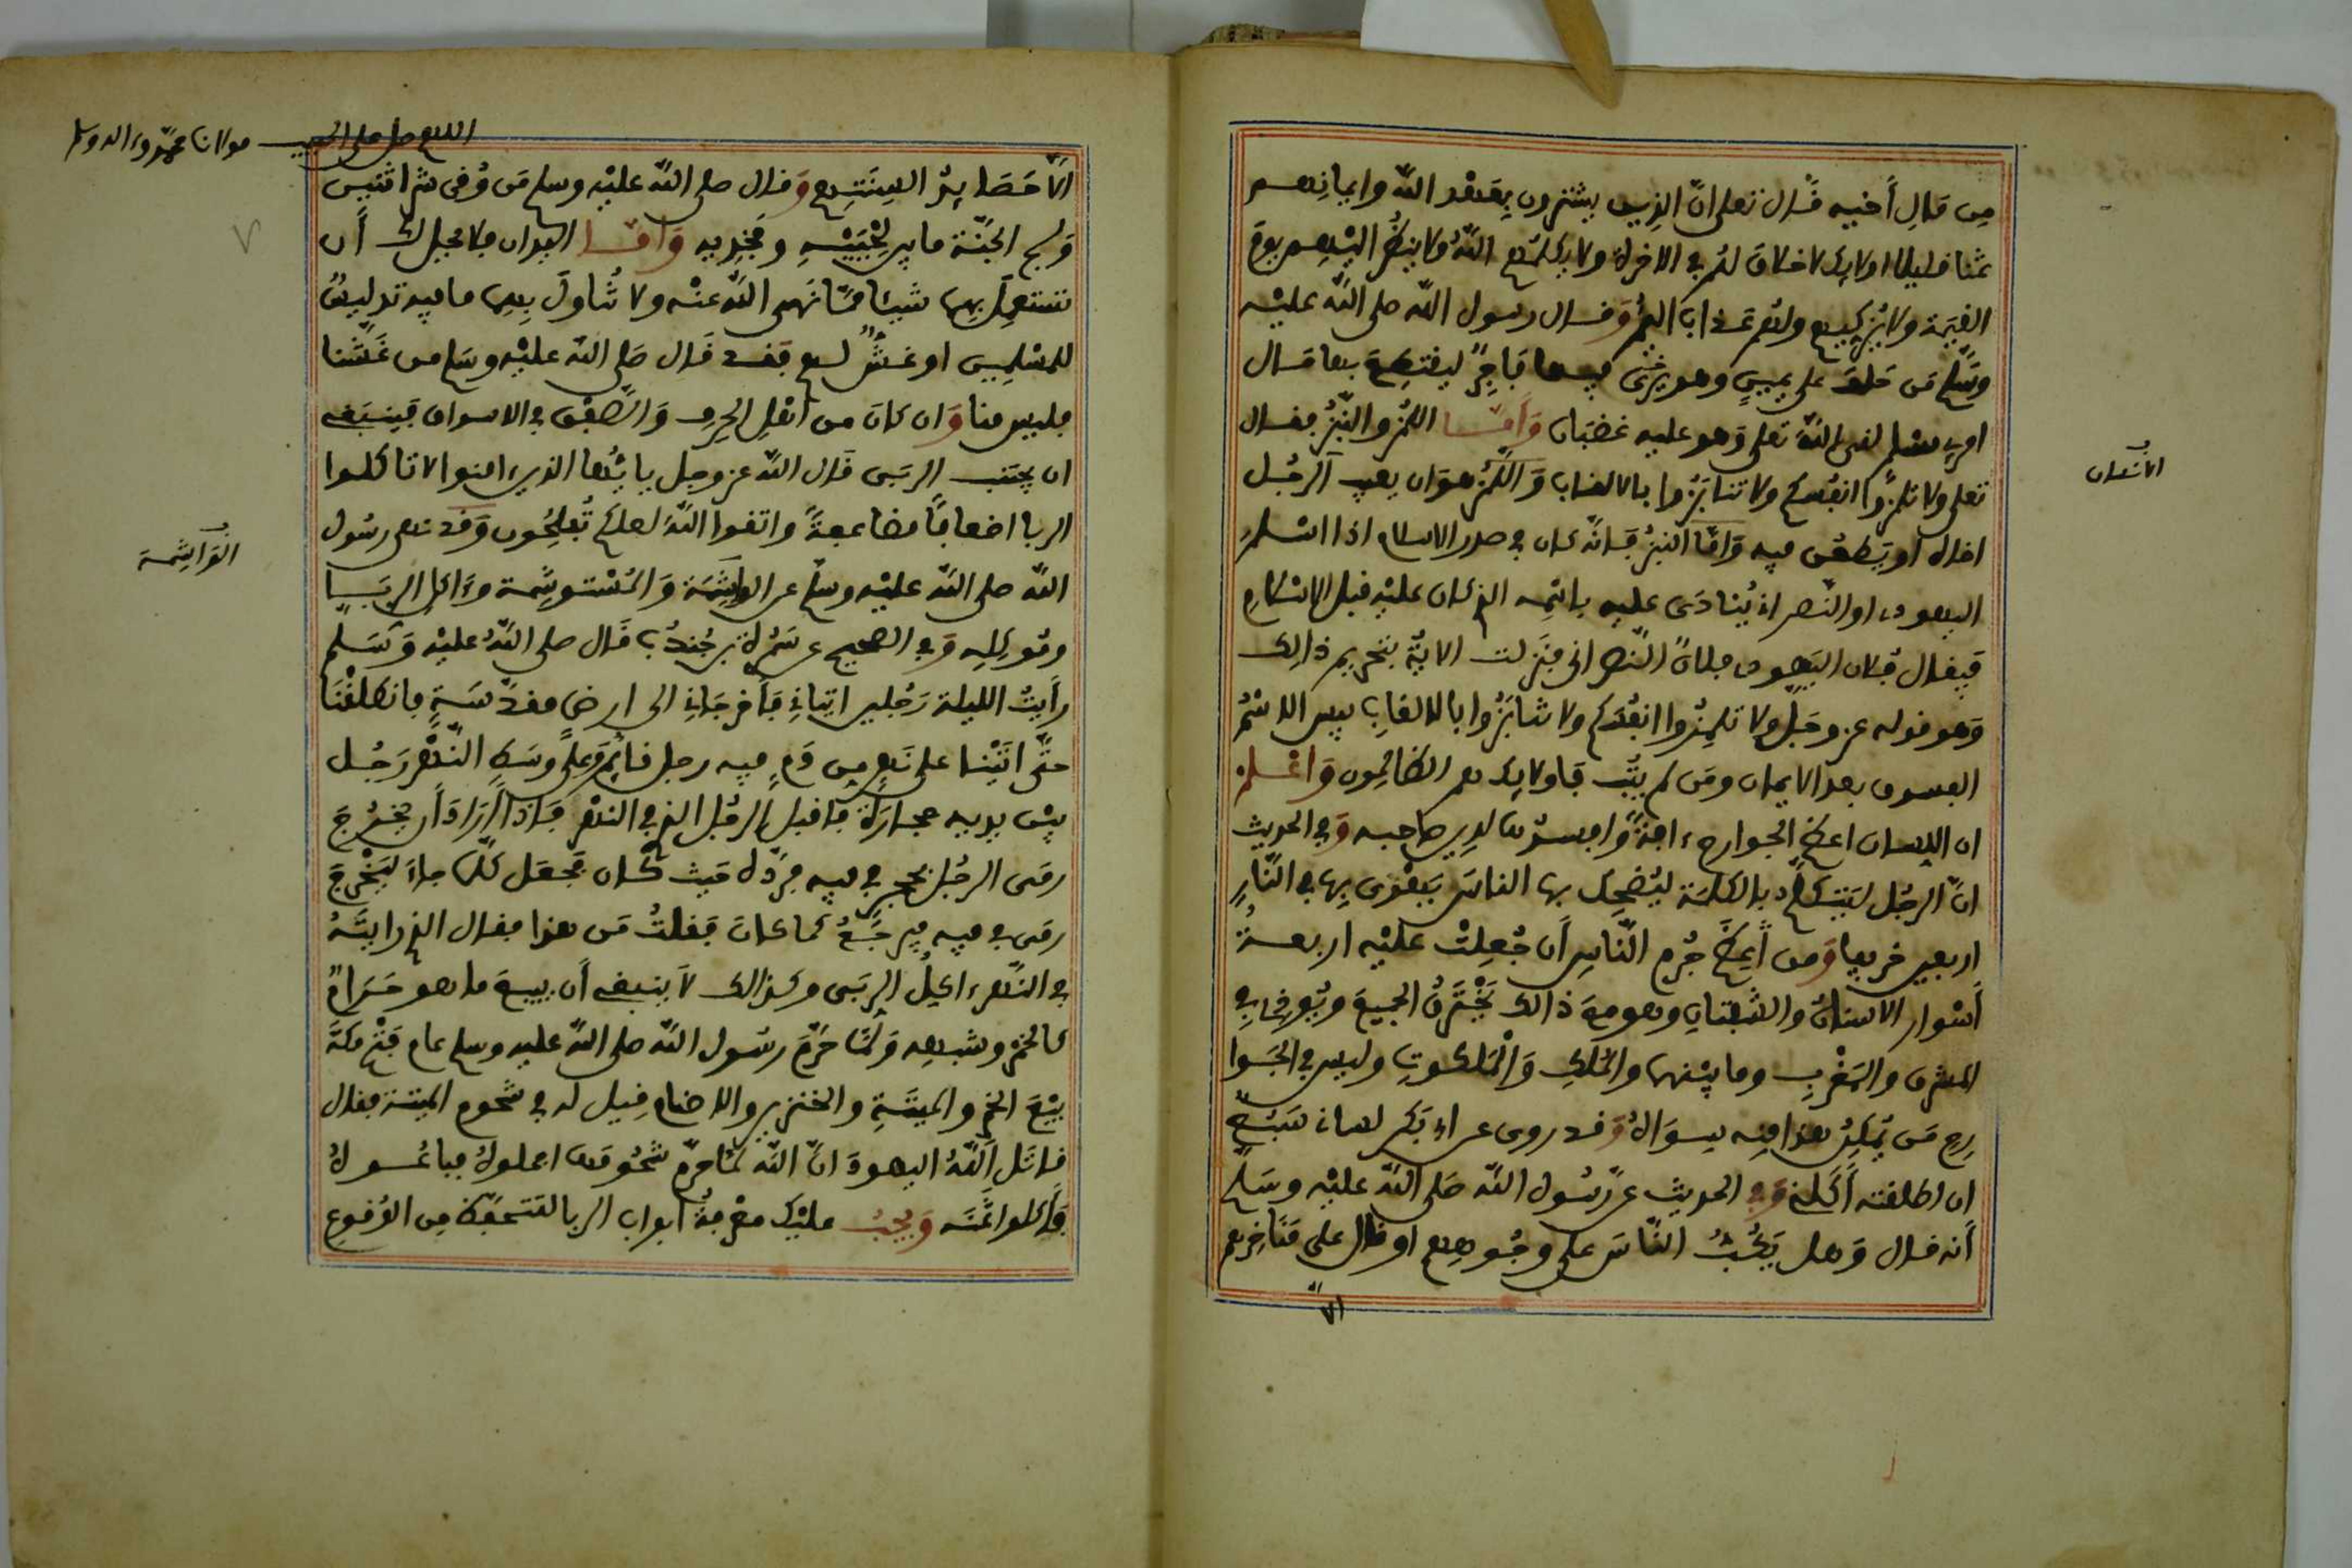 من مال أخيه قال تعلى انّ الذين يشترون بعهد الله وايمانهم
ثمنا قليلا اولايك لا خلاق لهم في الاخرة ولا يكلمهم الله ولا ينظر اليهم يوم
القيمة ولا يزكيهم ولهم عذاب اليم وقال رسول الله صلى الله عليه
وسلم من حلف على يمين وهو فيها فاجر ليقتطع بها مال
امرئ مسلم لقى الله تعلى وهو عليه غضبان وَأمّا اللمز والنبز فقال
تعلى ولا تلمزوا انفسكم ولا تنابزوا بالالقاب وَاللمز هو ان يعيب الرجل
اخاه او يطعن فيه وَامّا النبز فانّه كان في صدر الاسلام اذا اسلم
اليهودي او النصراني يُنادَى عليه باسمه الذي كان عليه قبل الاسلام
فيقال فلان اليهودي فلان النصراني فنزلت الاية بتحريم ذالك
وَهو قوله عز وجل ولا تلمزوا انفسكم ولا تنابزوا بالالقاب بيس الاسم
الفسوق بعد الايمان ومن لم يتب فاولايك هم الظالمون وَاعلم
ان اللسان اعظم الجوارح ءافة وافسدها لدين صاحبه وَفي الحديث
انّ الرجل ليتكلم بالكلمة ليضحك بها الناس يهوى بها في النار
اربعين خريفا وَمن أعظم جُرم النّاس أن جُعلت عليه اربعة
أسوار الاسنان والشفتان وهو مع ذالك يخترق الجميع
المشرق والمغرب وما بينهما والملك وَالملكوت وليس في الجوا
رح من يمكن هذا منه سواه وَقد روى عن ابي بكر لسانى سبع
ان اطلقته أكلني وَفي الحديث عن رسول الله صلى الله عليه وسلم
أنه قال وَهل يكب النّاس على وجوههم او قال على مناخرهم
الا
الاسنان
اللهم صل على الحبيب مولانا محمد وءاله وسلم
الّا حصايد السنتهم وَقال صلى الله عليه وسلم من وُقي شر اثنين
ولج الجنّة ما بين لحييه وفخذيه وَامّا اليدان فلا يحل لك أن
تستعمل بهما شيئا ممّا نهى الله عنه ولا تُناول بهما ما فيه تدليس
للمسلمين او غشٌّ لهم فقد قال صلى الله عليه وسلم من غَشّنا
فليس منا وَان كان من أهل الحرف وَالصّفق في الاسواق فينبغي
ان يجتنب الربى قال الله عز وجل يايّها الذين ءامنوا لا تاكلوا
الربا اضعافًا مضاعفةً واتقوا اللهَ لعلكم تُفلحُون وَقد نهى رسُول
الله صلى الله عليه وسلم عن الواشمة وَالمستوشمة وءاكل الربا
وموكله وَفي الصحيح عن سمرة بن جندب قال صلى الله عليه وَسَلم
رأيتُ الليلة رَجُلين اتياني فأخرجاني الى ارض مقدّسة فانطلقنا
حتّى اتينا على نهر من دم فيه رجل قائم وَعلى وسط النّهر رَجُل
بين يديه حجارة فاقبل الرجل الذي في النهر فاذا أراد أن يخرج
رمى الرجل بحجر في فيه فردّه حيث كان فجعل كلّما جاء ليخرج
رمى في فيه فيرجع كما كان فقلتُ من هذا فقال الذي رايته
في النّهر ءاكلُ الربى وكذالك لا ينبغي أن يبيع ما هو حَرام
كالخمر وشبهه وَلمّا حَرّم رسُول الله صلى الله عليه وسلم عام فتح مكة
بيع الخمر والميتة والخنزير والاصنام قيل له في شحوم الميتة فقال
قاتَل اللهُ اليهودَ انّ الله لمّا حرّم شحُومها اجملوه فباعُوه
فأكلوا ثمنه وَيجبُ عليك معرفةُ ابواب الربا لتتحفّظ من الوُقوع
الوَاشِمة